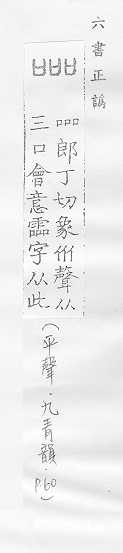 六書正譌
口口口郎丁切象㐺聲从
三口會意霝字从此
（平聲．九青韻．P.60）